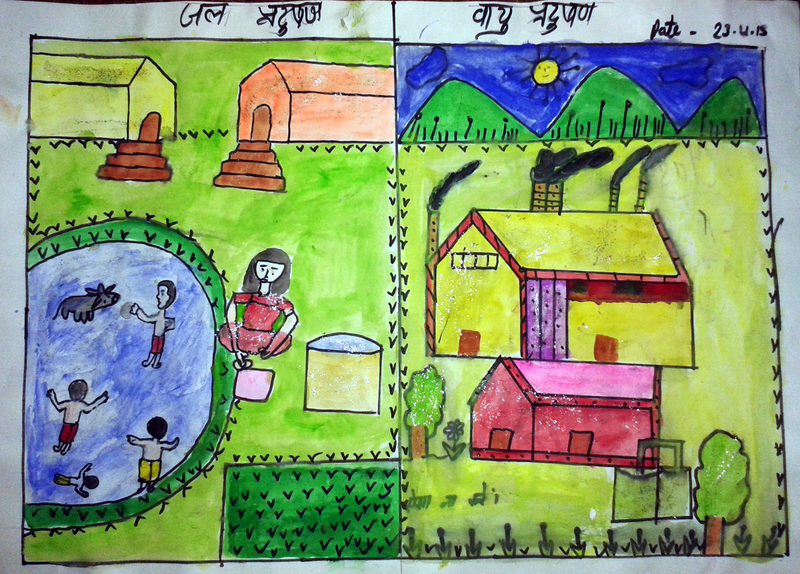 जल प्रदुषण
वायु प्रदुषण
Date - 23-4-15